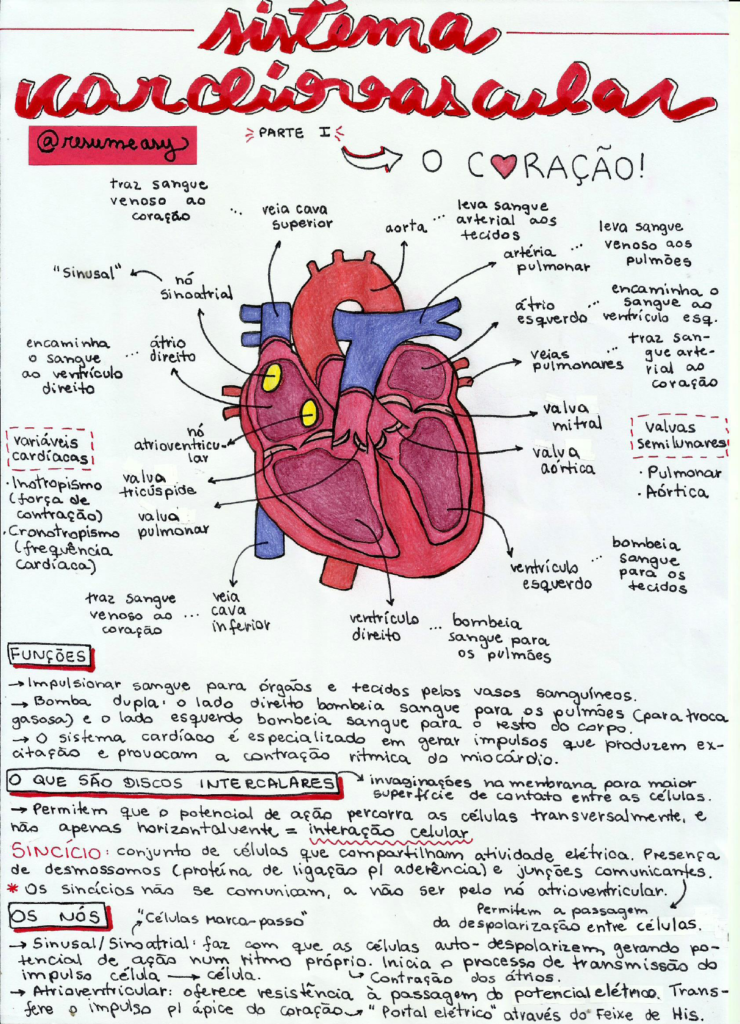 sistema
cardiovascular
@resumeasy
PARTE I
O CORAÇÃO!
traz sangue
venoso ao
coração
... veia cava
superior
aorta
... leva sangue
arterial aos
tecidos
artéria
pulmonar
... leva sangue
venoso aos
pulmões
"Sinusal"
nó
sinoatrial
átrio
esquerdo
... encaminha o
sangue ao
ventrículo esq.
encaminha
o sangue
ao ventrículo
direito
... átrio
direito
veias
pulmonares
... traz san-
gue arte-
rial ao
coração
nó
atrioventricu-
lar
valva
mitral
valva
aórtica
valvas
semilunares
· Pulmonar
· Aórtica
variáveis
cardíacas
· Inotropismo
(força de
contração)
· Cronotropismo
(frequência
cardíaca)
valva
tricúspide
valva
pulmonar
ventrículo
esquerdo
... bombeia
sangue
para os
tecidos
traz sangue
venoso ao
coração
... veia
cava
inferior
ventrículo
direito
... bombeia
sangue para
os pulmões
FUNÇÕES
→ Impulsionar sangue para órgãos e tecidos pelos vasos sanguíneos.
→ Bomba dupla: o lado direito bombeia sangue para os pulmões (para troca
gasosa) e o lado esquerdo bombeia sangue para o resto do corpo.
→ O sistema cardíaco é especializado em gerar impulsos que produzem ex-
citação e provocam a contração rítmica do miocárdio.
O QUE SÃO DISCOS INTERCALARES
→ invaginações na membrana para maior
superfície de contato entre as células.
→ Permitem que o potencial de ação percorra as células transversalmente, e
não apenas horizontalvente = interação celular
SINCÍCIO: conjunto de células que compartilham atividade elétrica. Presença
de desmossomos (proteína de ligação p/ aderência) e junções comunicantes.
* Os sincícios não se comunicam, a não ser pelo nó atrioventricular.
Permitem a passagem
da despolarização entre células.
OS NÓS
"Células Marca-passo"
→ Sinusal/Sinoatrial: faz com que as células auto-despolarizem, gerando po-
tencial de ação num ritmo próprio. Inicia o processo de transmissão do
impulso célula → célula.
↳ Contração dos átrios.
→ Atrioventricular: oferece resistência à passagem do potencial elétrico. Trans-
fere o impulso p/ ápice do coração → "Portal elétrico" através do Feixe de His.